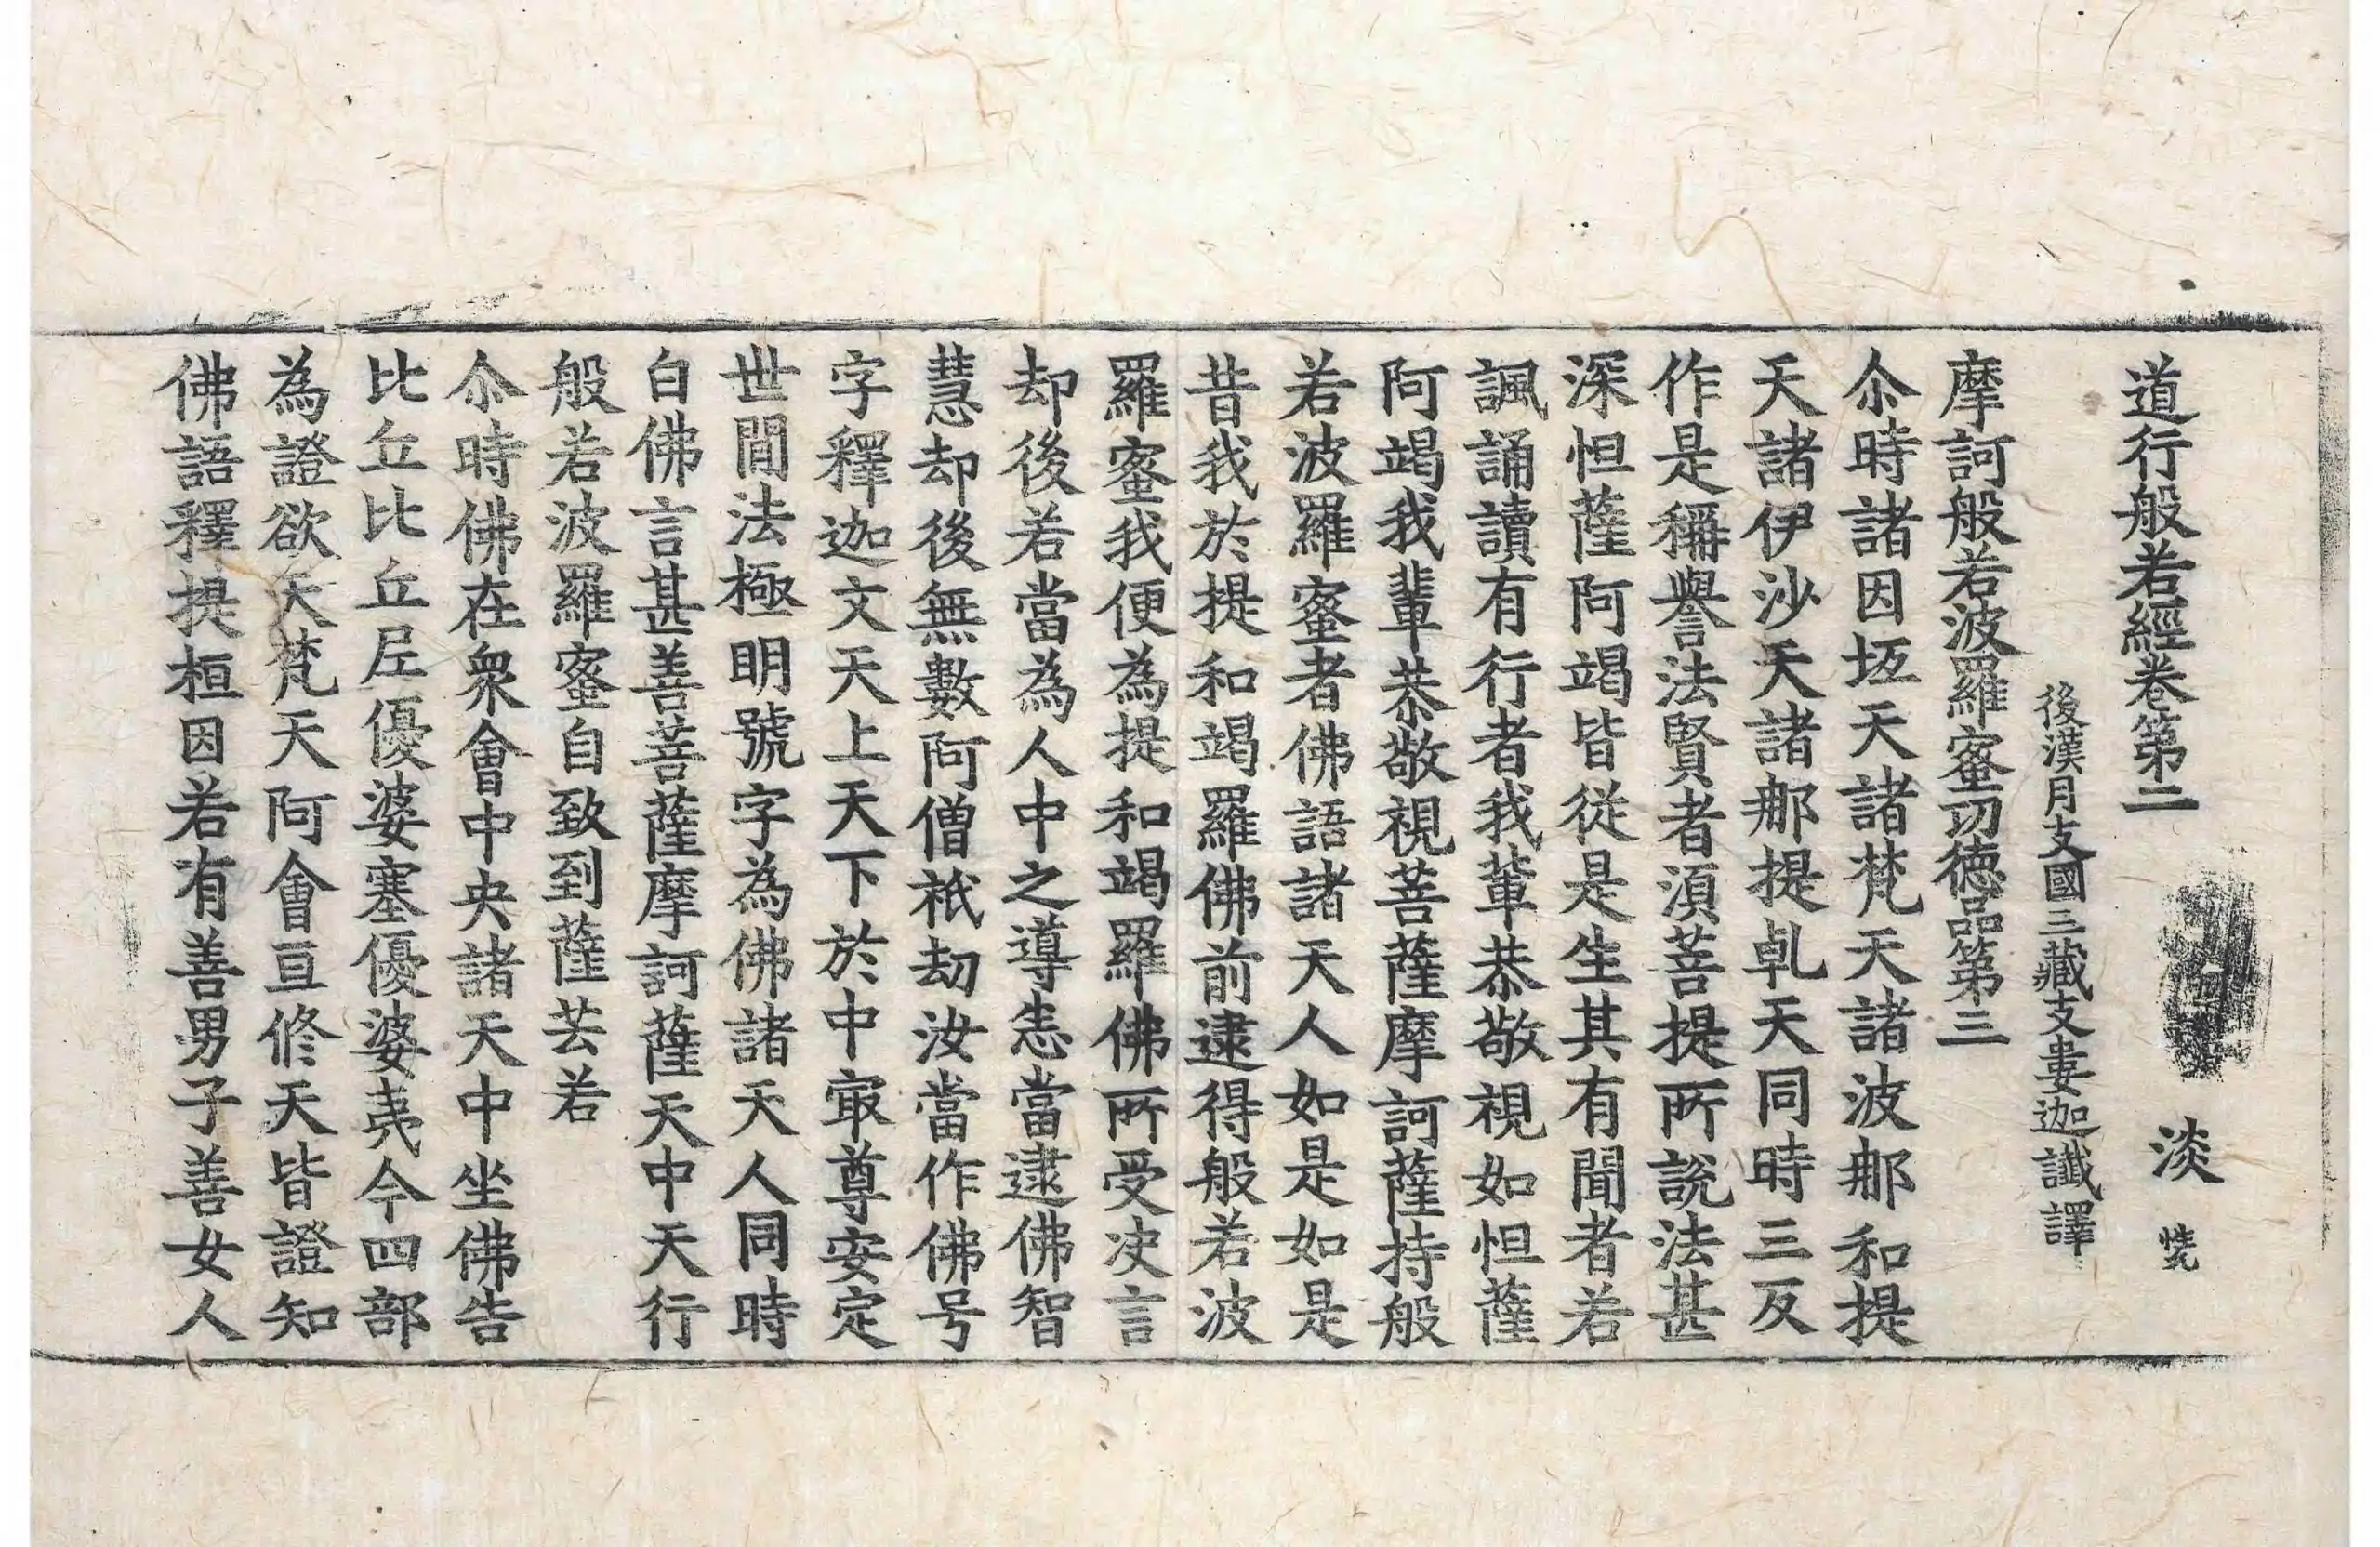 道行般若經卷第二 淡
後漢月支國三藏支婁迦讖譯
摩訶般若波羅蜜功德品第三
尒時諸因坻天諸梵天諸波那和提
天諸伊沙天諸那提乹天同時三反
作是稱譽法賢者湏菩提所說法甚
深怛薩阿竭皆從是生其有聞者若
諷誦讀有行者我輩恭敬視如怛薩
阿竭我輩恭敬視菩薩摩訶薩持般
若波羅蜜者佛語諸天人如是如是
昔我於提和竭羅佛前逮得般若波
羅蜜我便為提和竭羅佛所受决言
却後若當為人中之導悉當逮佛智
慧却後無數阿僧祇劫汝當作佛号
字釋迦文天上天下於中㝡尊安定
世間法極明號字為佛諸天人同時
白佛言甚善菩薩摩訶薩天中天行
般若波羅蜜自致到薩芸若
尒時佛在衆會中央諸天中坐佛告
比丘比丘尼優婆塞優婆夷今四部
為證欲天梵天阿會亘修天皆證知
佛語釋提桓因若有善男子善女人